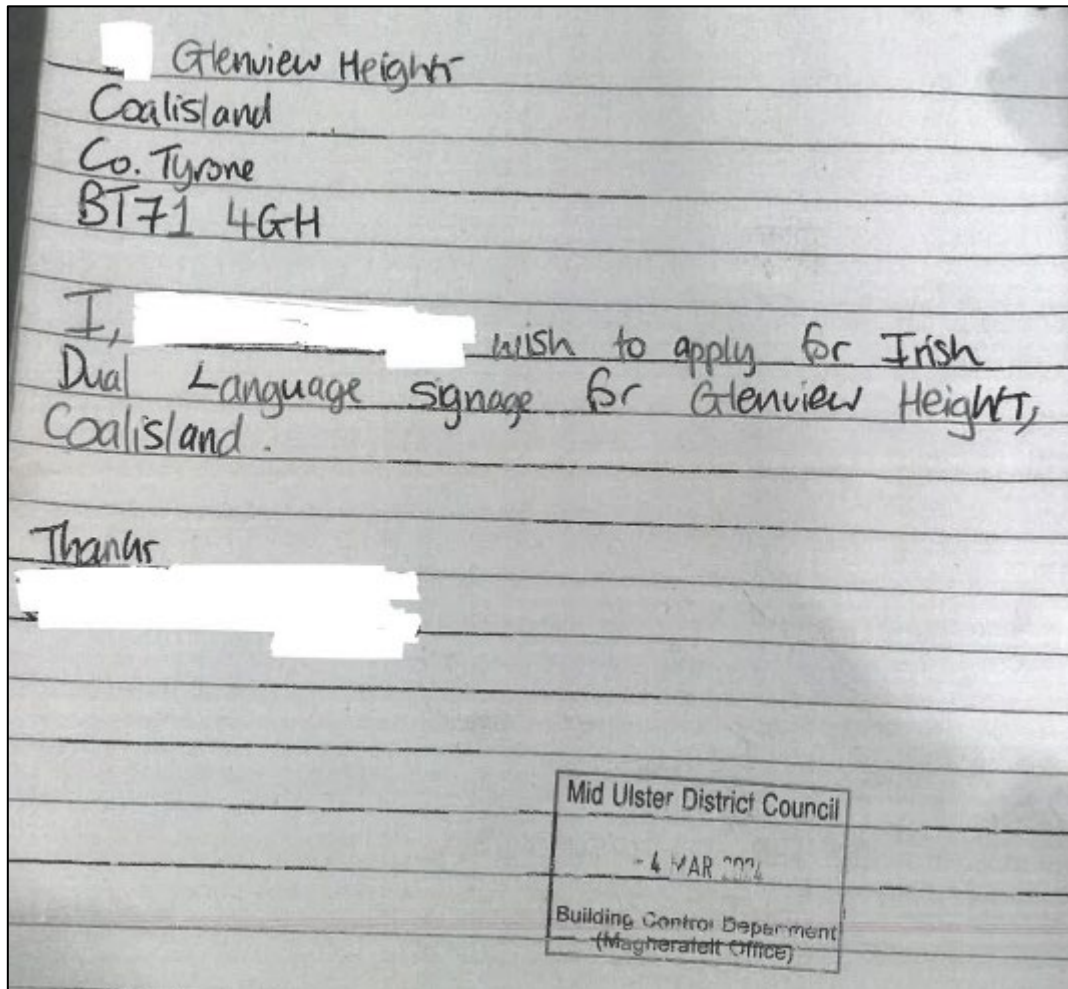 Glenview Heights
Coalisland
Co. Tyrone
BT71 4GH
I, wish to apply for Irish
Dual Language signage for Glenview Heights,
Coalisland.
Thanks
Mid Ulster District Council
- 4 MAR 2024
Building Control Department
(Magherafelt Office)